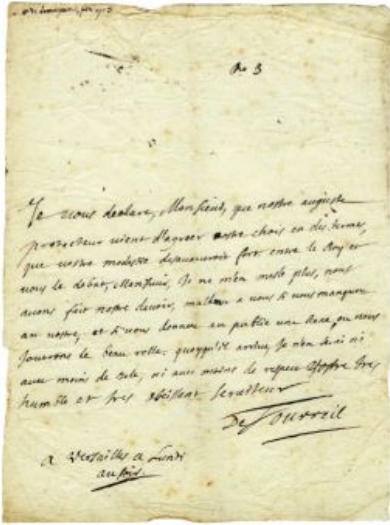 No 3
Je vous declare, Monsieur, que nostre auguste
protecteur vient d'agreer vostre choix en des termes,
que vostre modestie desavoueroit fort entre le Roy et
vous le debat, Monsieur, Je ne m'en mesle plus, nous
avons fait nostre devoir, malheur a vous si vous manquez
au vostre, et si vous donnez au public une scene, ou nous
Jouerons le beau rolle. quoyqu'il arrive, Je n'en serai ni
avec moins de zele, ni avec moins de respect Vostre tres
humble et tres obeissant serviteur
De Tourreil
a Versailles ce Lundi
au soir.